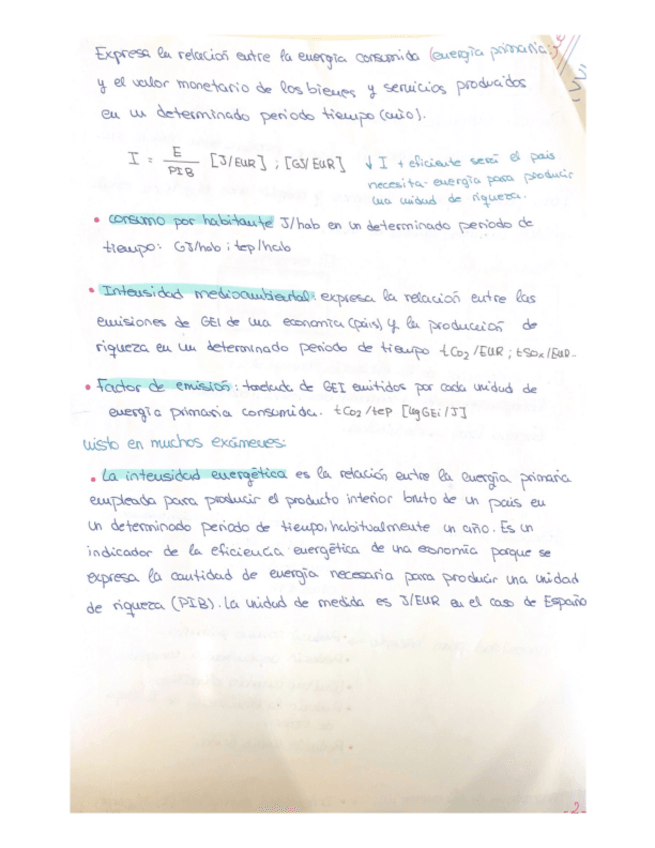 Expresa la relación entre la energía consumida (energía primaria)
y el valor monetario de los bienes y servicios producidos
en un determinado periodo tiempo (año).
I = E / PIB [J/EUR] ; [GJ/EUR] ↓ I + eficiente será el país
necesita - energía para producir
una unidad de riqueza.
• Consumo por habitante J/hab en un determinado periodo de
tiempo: GJ/hab ; tep/hab
• Intensidad medioambiental: expresa la relación entre las
emisiones de GEI de una economía (país) y la producción de
riqueza en un determinado periodo de tiempo tCO2/EUR ; tSOx/EUR.
• Factor de emisión: tonelada de GEI emitidos por cada unidad de
energía primaria consumida. tCO2/tep [kgGEi/J]
visto en muchos exámenes:
• La intensidad energética es la relación entre la energía primaria
empleada para producir el producto interior bruto de un país en
un determinado periodo de tiempo, habitualmente un año. Es un
indicador de la eficiencia energética de una economía porque se
expresa la cantidad de energía necesaria para producir una unidad
de riqueza (PIB). La unidad de medida es J/EUR en el caso de España
-2-